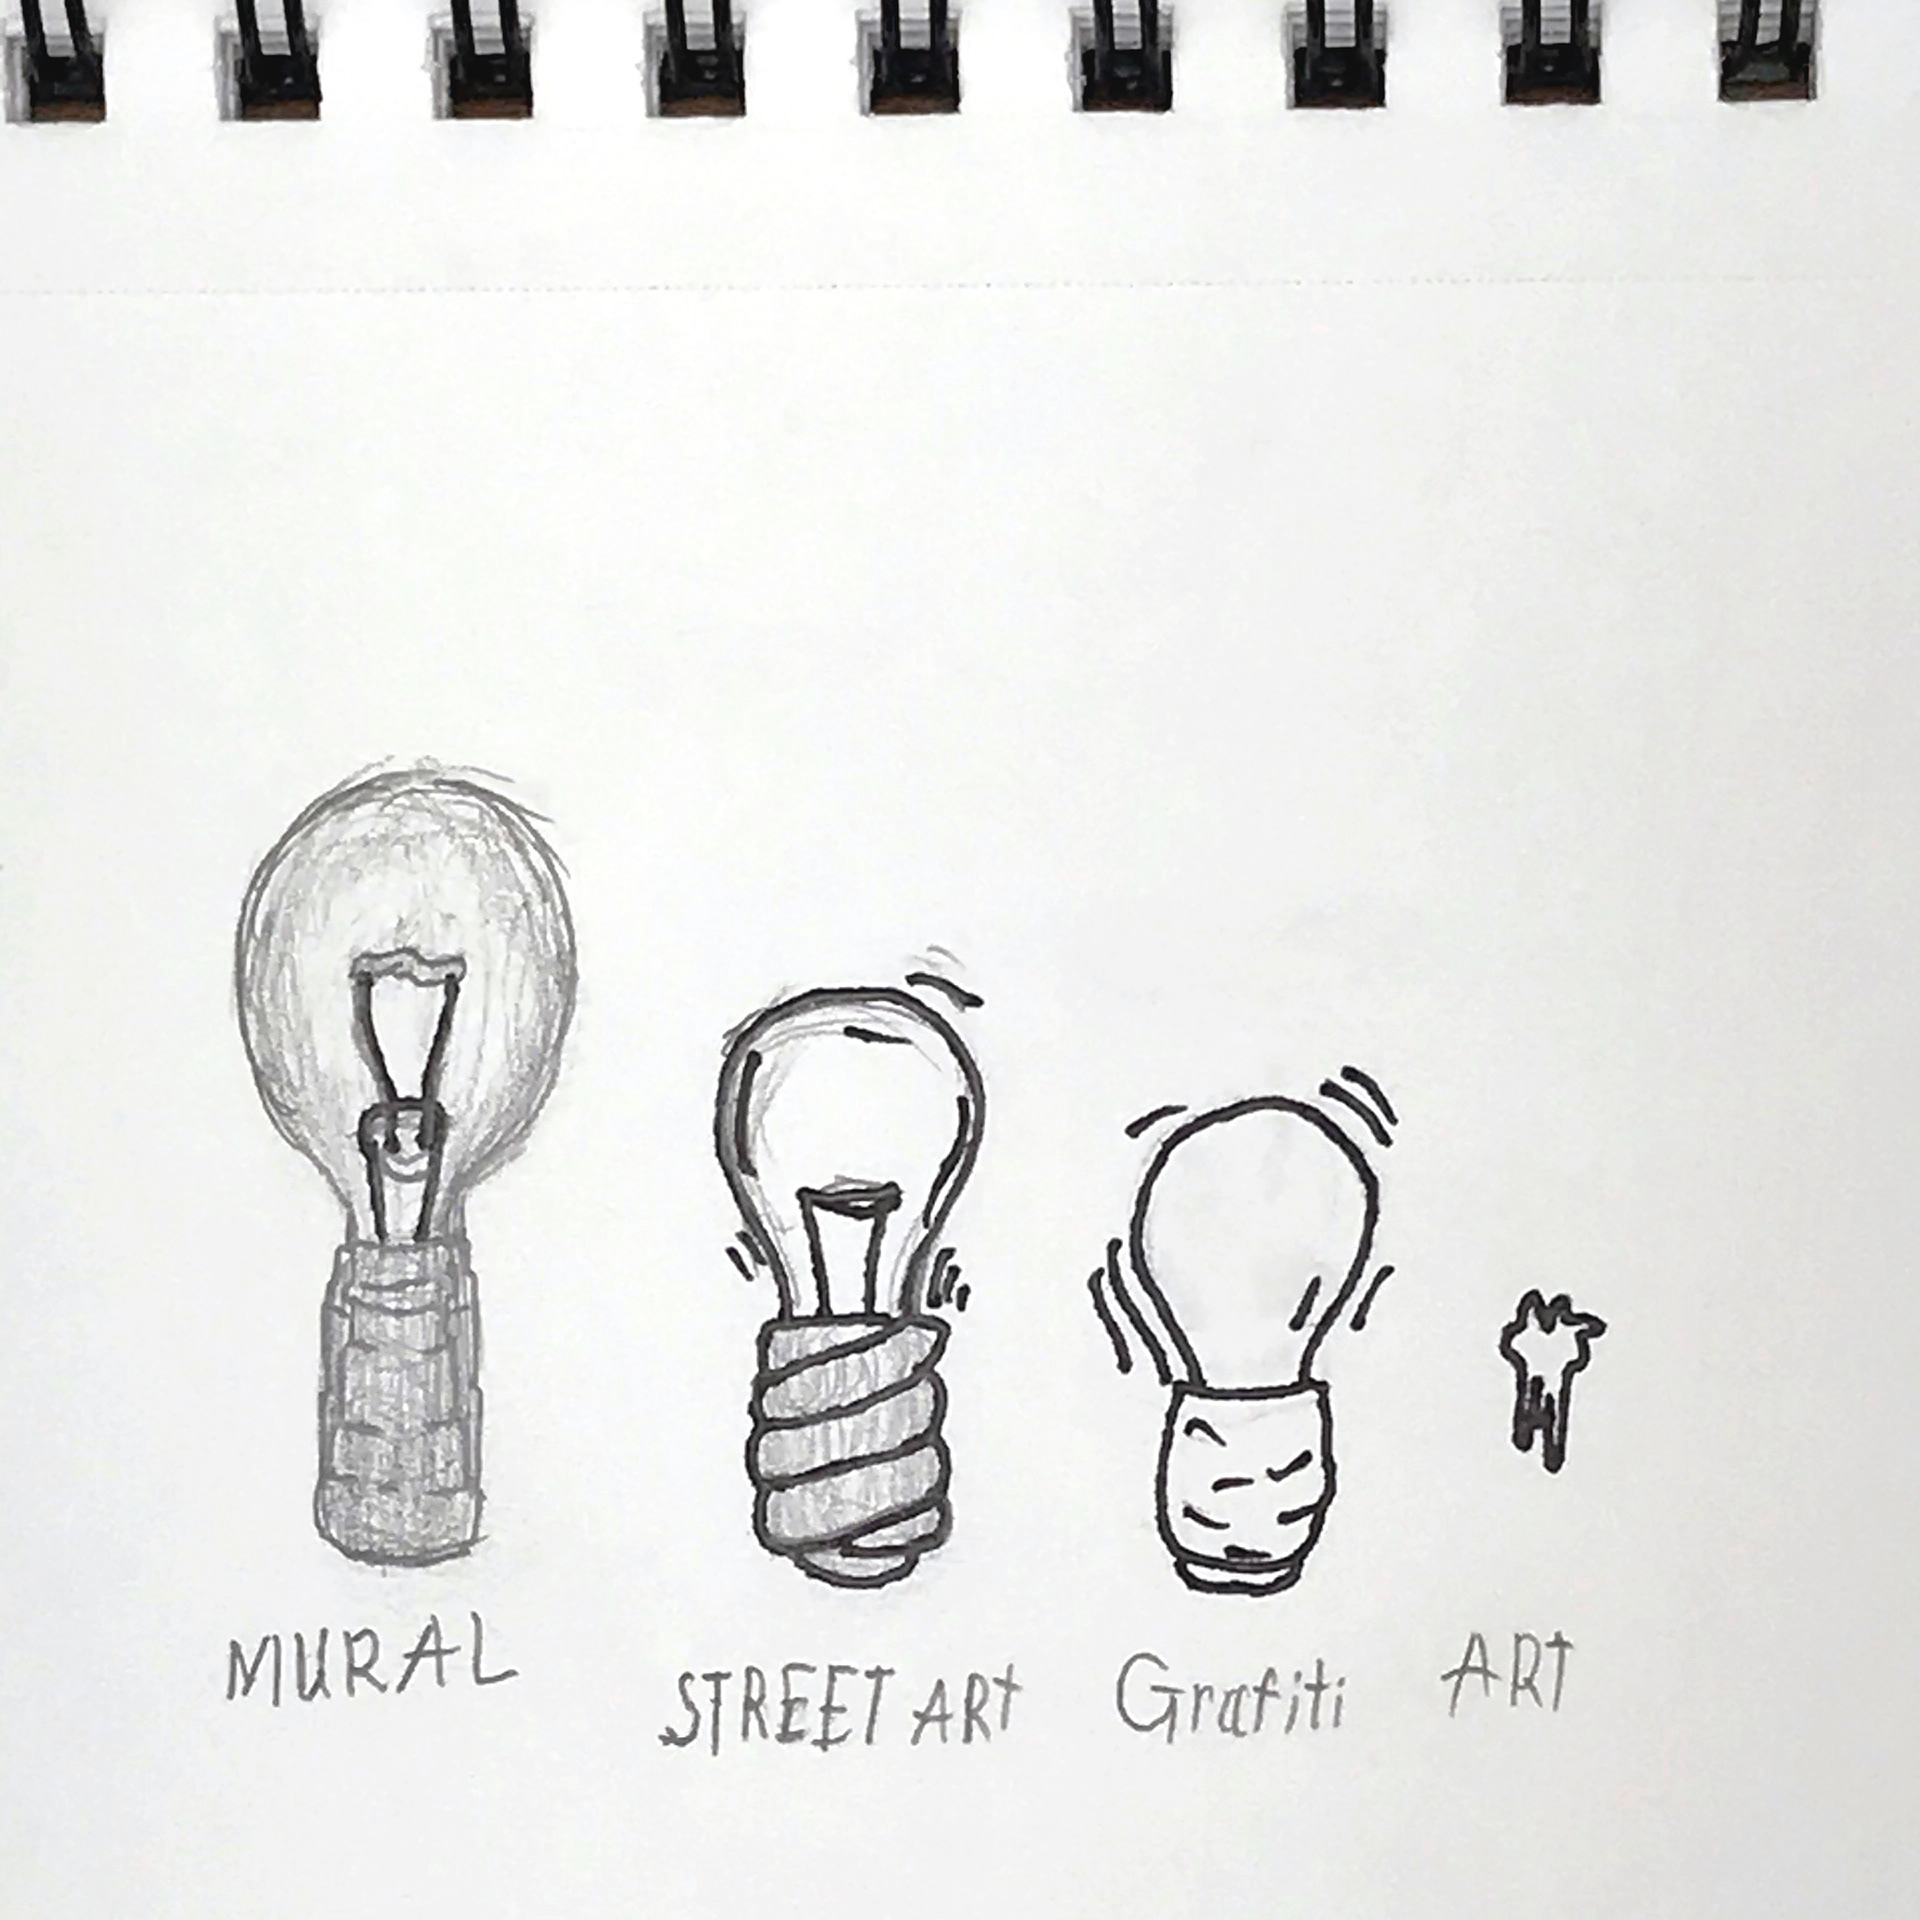 MURAL STREET ART Grafiti ART